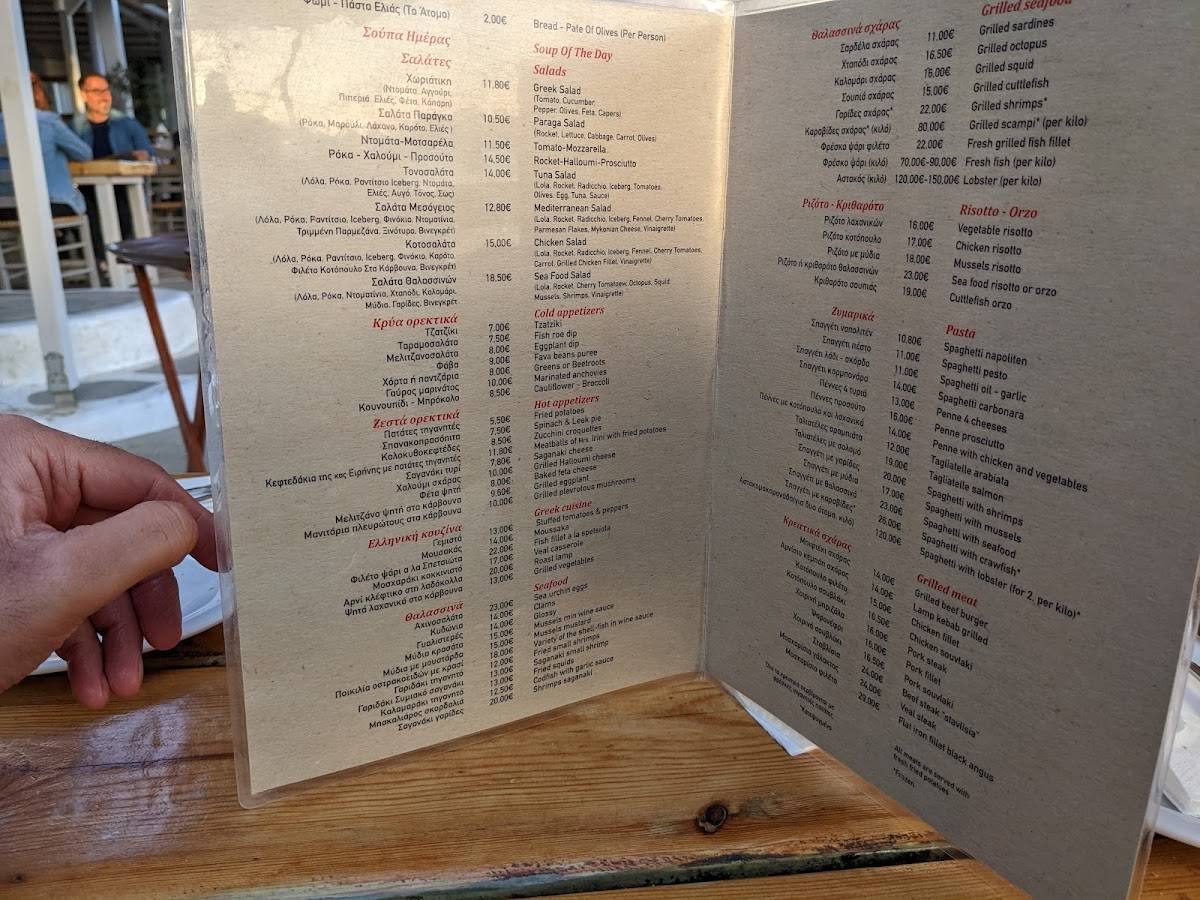 Ψωμί - Πάστα Ελιάς (Το Άτομο) 2,00€ Bread - Pate Of Olives (Per Person)
Σούπα Ημέρας Soup Of The Day
Σαλάτες Salads
Χωριάτικη 11.80€ Greek Salad
(Ντομάτα, Αγγούρι, (Tomato, Cucumber,
Πιπεριά, Ελιές, Φέτα, Κάπαρη) Pepper, Olives, Feta, Capers)
Σαλάτα Παράγκα 10.50€ Paraga Salad
(Ρόκα, Μαρούλι, Λάχανο, Καρότο, Ελιές ) (Rocket, Lettuce, Cabbage, Carrot, Olives)
Ντομάτα-Μοτσαρέλα 11.50€ Tomato-Mozzarella
Ρόκα - Χαλούμι - Προσούτο 14,50€ Rocket-Halloumi-Prosciutto
Τονοσαλάτα 14,00€ Tuna Salad
(Λόλα, Ρόκα, Ραντίτσιο Iceberg, Ντομάτα, (Lola, Rocket, Radicchio, Iceberg, Tomatoes,
Ελιές, Αυγό, Τόνος, Σως) Olives, Egg, Tuna, Sauce)
Σαλάτα Μεσόγειος 12,80€ Mediterranean Salad
(Λόλα, Ρόκα, Ραντίτσιο, Iceberg, Φινόκιο, Ντοματίνια, (Lola, Rocket, Radicchio, Iceberg, Fennel, Cherry Tomatoes,
Τριμμένη Παρμεζάνα, Ξινότυρο, Βινεγκρέτ) Parmesan Flakes, Mykonian Cheese, Vinaigrette)
Κοτοσαλάτα 15,00€ Chicken Salad
(Λόλα, Ρόκα, Ραντίτσιο, Iceberg, Φινόκιο, Καρότο, (Lola, Rocket, Radicchio, Iceberg, Fennel, Cherry Tomatoes,
Φιλέτο Κοτόπουλο Στα Κάρβουνα, Βινεγκρέτ) Carrot, Grilled Chicken Fillet, Vinaigrette)
Σαλάτα Θαλασσινών 18,50€ Sea Food Salad
(Λόλα, Ρόκα, Ντοματίνια, Χταπόδι, Καλαμάρι, (Lola, Rocket, Cherry Tomatoew, Octopus, Squid
Μύδια, Γαρίδες, Βινεγκρέτ Mussels, Shrimps, Vinaigrette)
Κρύα ορεκτικά Cold appetizers
Τζατζίκι 7.00€ Tzatziki
Ταραμοσαλάτα 7.50€ Fish roe dip
Μελιτζανοσαλάτα 8,00€ Eggplant dip
Φάβα 9,00€ Fava beans puree
Χόρτα ή παντζάρια 8,00€ Greens or Beetroots
Γαύρος μαρινάτος 10,00€ Marinated anchovies
Κουνουπίδι - Μπρόκολο 8,50€ Cauliflower - Broccoli
Ζεστά ορεκτικά Hot appetizers
Πατάτες τηγανητές 5,50€ Fried potatoes
Σπανακοπρασόπιτα 7,50€ Spinach & Leek pie
Κολοκυθοκεφτέδες 8,50€ Zucchini croquettes
Κεφτεδάκια της κας Ειρήνης με πατάτες τηγανητές 11,80€ Meatballs of Mrs. Irini with fried potatoes
Σαγανάκι τυρί 7,80€ Saganaki cheese
Χαλούμι σχάρας 10.00€ Grilled Halloumi cheese
Φέτα ψητή 8,00€ Baked feta cheese
Μελιτζάνα ψητή στα κάρβουνα 9,60€ Grilled eggplant
Μανιτάρια πλευρώτους στα κάρβουνα 10,00€ Grilled plevrotous mushrooms
Ελληνική κουζίνα Greek cuisine
Γεμιστά 13,00€ Stuffed tomatoes & peppers
Μουσακάς 14,00€ Moussaka
Φιλέτο ψάρι α λα Σπετσιώτα 22,00€ Fish fillet a la spetseida
Μοσχαράκι κοκκινιστό 17,00€ Veal casserole
Αρνί κλέφτικο στη λαδόκολλα 20,00€ Roast lamp
Ψητά λαχανικά στα κάρβουνα 13,00€ Grilled vegetables
Θαλασσινά Seafood
Αχινοσαλάτα 23,00€ Sea urchin eggs
Κυδώνια 14,00€ Clams
Γυαλιστερές 14,00€ Glossy
Μύδια κρασάτα 15,00€ Mussels min wine sauce
Μύδια με μουστάρδα 15,00€ Mussels mustard
Ποικιλία οστρακοειδών με κρασί 18,00€ Variety of the shell-fish in wine sauce
Γαριδάκι τηγανητό 12,00€ Fried small shrimps
Γαριδάκι Συμιακό σαγανάκι 13,00€ Saganaki small shrimp
Καλαμαράκι τηγανητό 13,00€ Fried squids
Μπακαλιάρος σκορδαλιά 12,50€ Codfish with garlic sauce
Σαγανάκι γαρίδες 20,00€ Shrimps saganaki
Θαλασσινά σχάρας Grilled seafood
Σαρδέλα σχάρας 11,00€ Grilled sardines
Χταπόδι σχάρας 16,50€ Grilled octopus
Καλαμάρι σχάρας 15,00€ Grilled squid
Σουπιά σχάρας 15,00€ Grilled cuttlefish
Γαρίδες σχάρας* 22,00€ Grilled shrimps*
Καραβίδες σχάρας* (κιλό) 80,00€ Grilled scampi* (per kilo)
Φρέσκο ψάρι φιλέτο 22,00€ Fresh grilled fish fillet
Φρέσκο ψάρι (κιλό) 70,00€-90,00€ Fresh fish (per kilo)
Αστακός (κιλό) 120,00€-150,00€ Lobster (per kilo)
Ριζότο - Κριθαρότο Risotto - Orzo
Ριζότο λαχανικών 16,00€ Vegetable risotto
Ριζότο κοτόπουλο 17,00€ Chicken risotto
Ριζότο με μύδια 18,00€ Mussels risotto
Ριζότο ή κριθαρότο θαλασσινών 23,00€ Sea food risotto or orzo
Κριθαρότο σουπιάς 19,00€ Cuttlefish orzo
Ζυμαρικά Pasta
Σπαγγέτι ναπολιτέν 10,80€ Spaghetti napoliten
Σπαγγέτι πέστο 11,00€ Spaghetti pesto
Σπαγγέτι λάδι - σκόρδο 11,00€ Spaghetti oil - garlic
Σπαγγέτι καρμπονάρα 14,00€ Spaghetti carbonara
Πέννες 4 τυριά 13,00€ Penne 4 cheeses
Πέννες προσούτο 16,00€ Penne prosciutto
Πέννες με κοτόπουλο και λαχανικά 14,00€ Penne with chicken and vegetables
Ταλιατέλες αραμπιάτα 12,00€ Tagliatelle arabiata
Ταλιατέλες με σολομό 19,00€ Tagliatelle salmon
Σπαγγέτι με γαρίδες 20,00€ Spaghetti with shrimps
Σπαγγέτι με μύδια 17,00€ Spaghetti with mussels
Σπαγγέτι με θαλασσινά 23,00€ Spaghetti with seafood
Σπαγγέτι με καραβίδες* 26,00€ Spaghetti with crawfish*
Αστακομακαρονάδα (για δυο άτομα, κιλό) 120,00€ Spaghetti with lobster (for 2, per kilo)*
Κρεατικά σχάρας Grilled meat
Μπιφτέκι σχάρας 14,00€ Grilled beef burger
Αρνίσιο κεμπάπ σχάρας 14,00€ Lamp kebab grilled
Κοτόπουλο φιλέτο 15,00€ Chicken fillet
Κοτόπουλο σουβλάκι 16,50€ Chicken souvlaki
Χοιρινή μπριζόλα 16,00€ Pork steak
Ψαρονέφρι 16,00€ Pork fillet
Χοιρινό σουβλάκι 16,50€ Pork souvlaki
Σταβλίσια 24,00€ Beef steak "stavlisia"
Μοσχαρίσια γάλακτος 24,00€ Veal steak
Μοσχαρίσιο φιλέτο 29,00€ Flat iron fillet black angus
Όλα τα κρεατικά σερβίρονται με All meats are served with
φρέσκες τηγανητές πατάτες fresh fried potatoes
*Κατεψυγμένο *Frozen